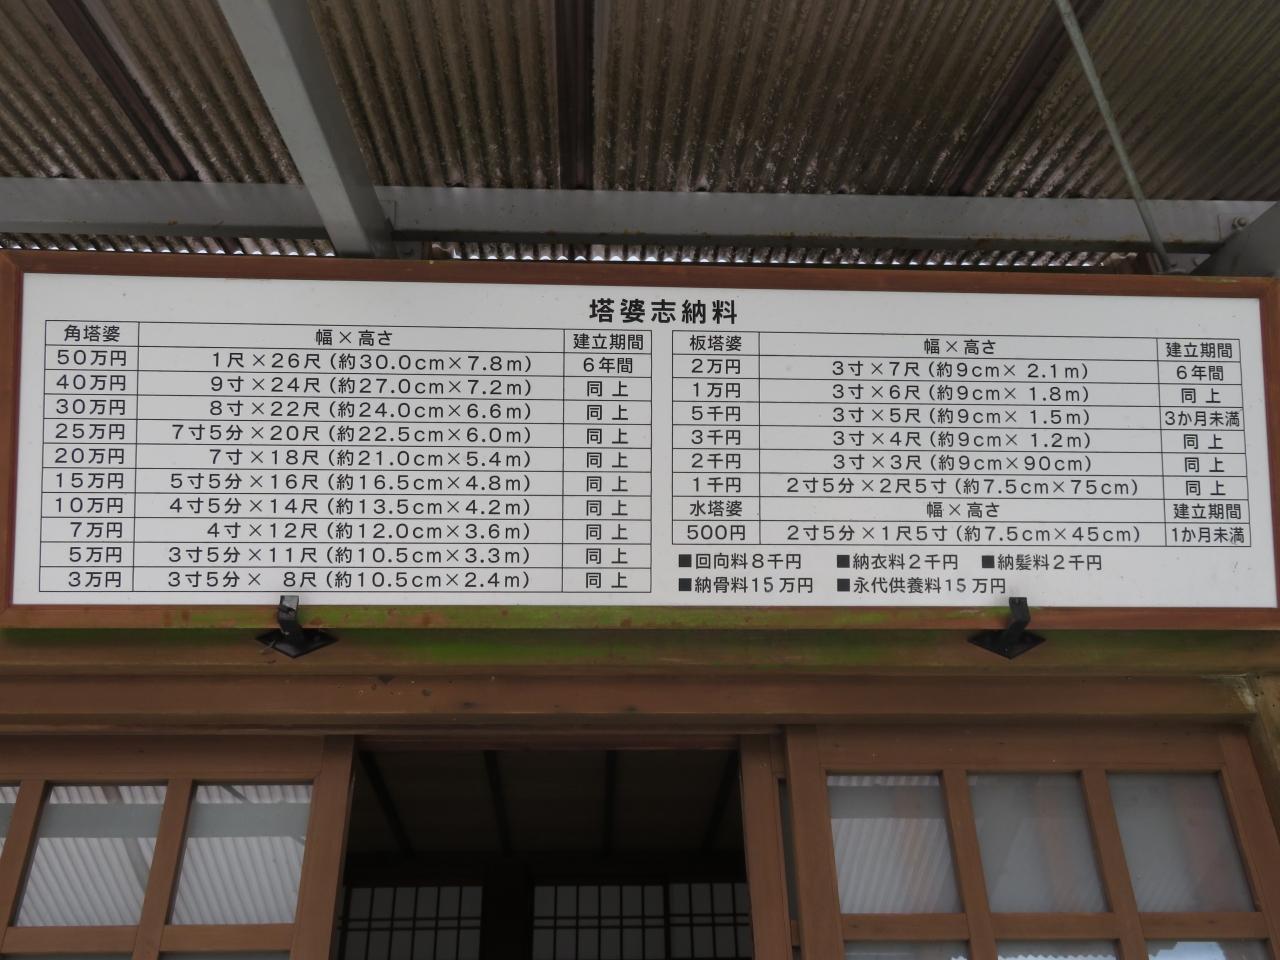 塔婆志納料
角塔婆 幅×高さ 建立期間
50万円 1尺×26尺(約30.0cm×7.8m) 6年間
40万円 9寸×24尺(約27.0cm×7.2m) 同上
30万円 8寸×22尺(約24.0cm×6.6m) 同上
25万円 7寸5分×20尺(約22.5cm×6.0m) 同上
20万円 7寸×18尺(約21.0cm×5.4m) 同上
15万円 5寸5分×16尺(約16.5cm×4.8m) 同上
10万円 4寸5分×14尺(約13.5cm×4.2m) 同上
7万円 4寸×12尺(約12.0cm×3.6m) 同上
5万円 3寸5分×11尺(約10.5cm×3.3m) 同上
3万円 3寸5分× 8尺(約10.5cm×2.4m) 同上
板塔婆 幅×高さ 建立期間
2万円 3寸×7尺(約9cm× 2.1m) 6年間
1万円 3寸×6尺(約9cm× 1.8m) 同上
5千円 3寸×5尺(約9cm× 1.5m) 3か月未満
3千円 3寸×4尺(約9cm× 1.2m) 同上
2千円 3寸×3尺(約9cm×90cm) 同上
1千円 2寸5分×2尺5寸(約7.5cm×75cm) 同上
水塔婆 幅×高さ 建立期間
500円 2寸5分×1尺5寸(約7.5cm×45cm) 1か月未満
■回向料8千円 ■納衣料2千円 ■納髪料2千円
■納骨料15万円 ■永代供養料15万円